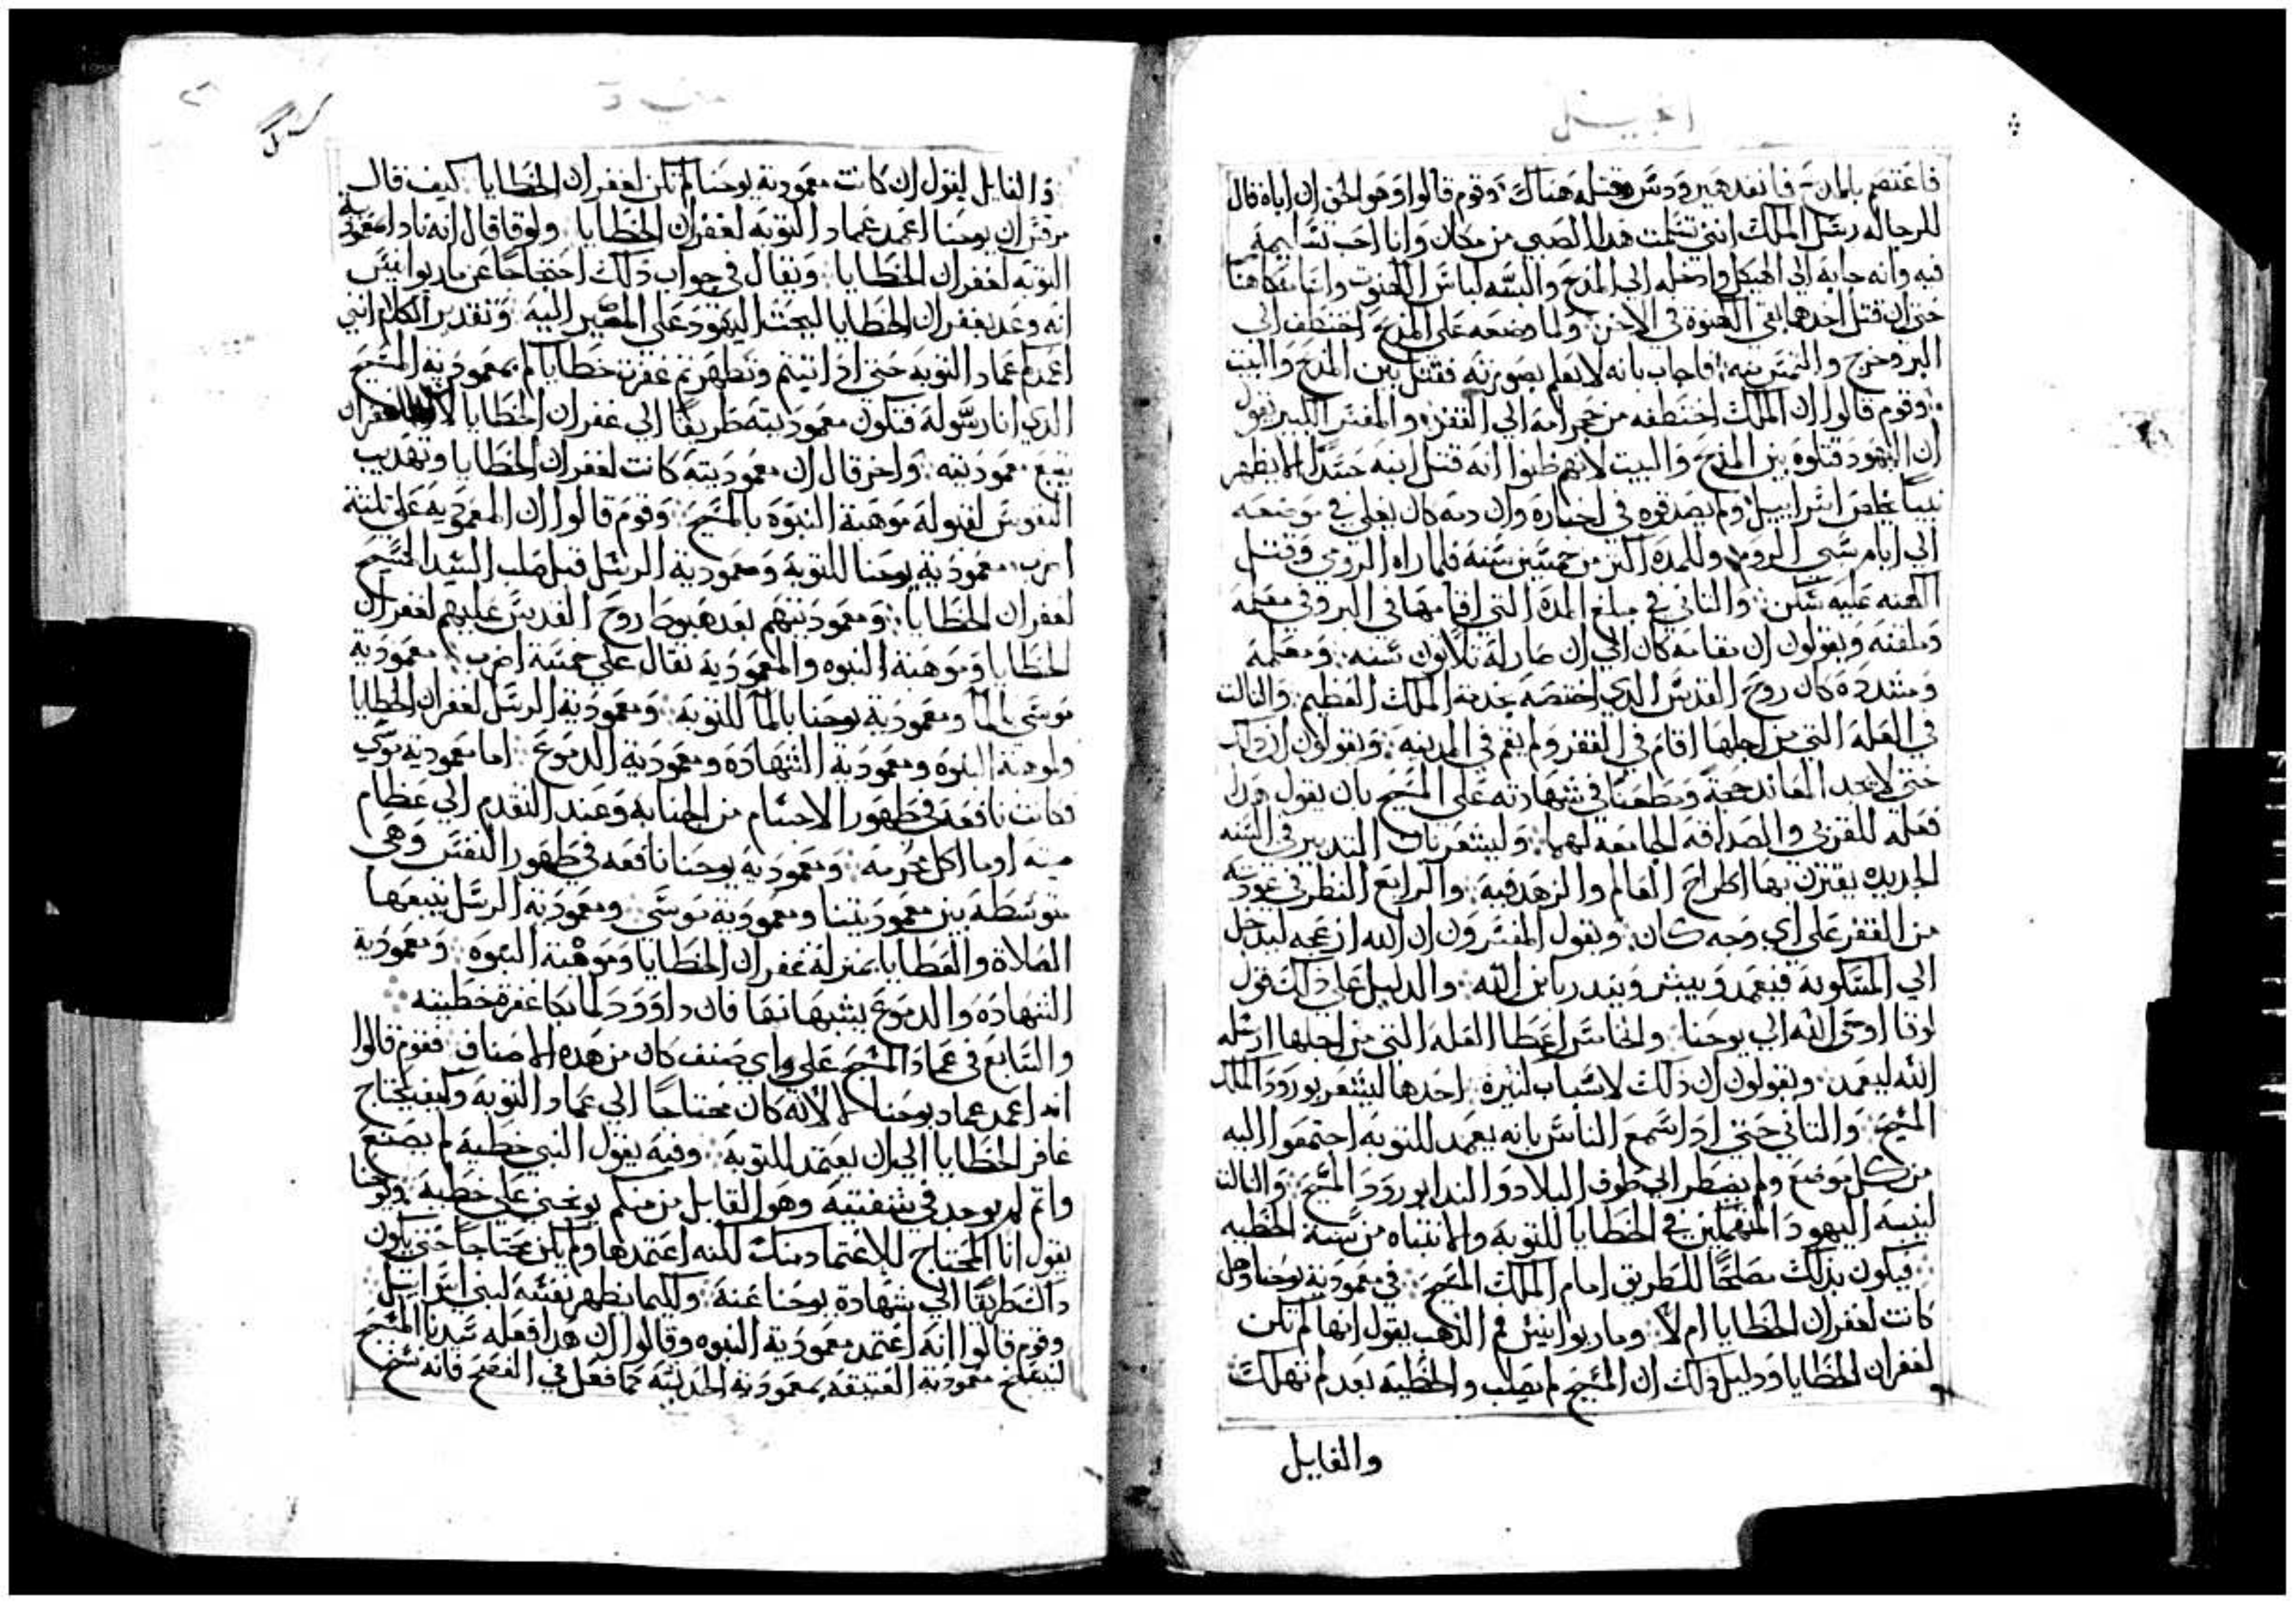 انجيل
فاعتصم بالمذبح فانفد هيرودس وقتله هناك وقوم قالوا وهو الحق ان اباه قال
للرجاله رسل الملك انني تسلمت هدا الصبي من مكان وانا احب تسليمه
فيه وانه جابه الى الهيكل وادخله الى المدبح والبسه لباس الكهنوت واسامه كاهنا
حتى ان قتل احدهما بقى الكهنوة في الاخر ولما وضعه على المدبح اختطف الى
البر وخرج والتمس منه فاجاب بانه لا يعلم بصورته فقتل بين المدبح والبيت
وقوم قالوا ان الملك اختطفه من حجر امه الى القفر والمفسر الكبير يقول
ان اليهود قتلوه بين المدبح والبيت لانهم ظنوا انه قتل ابنه حسدا لالا يظهر
نبيا يخلص اسراييل ولم يصدقوه في اخباره وان دمه كان يغلي في موضعه
الى ايام سبي الروم وللمده اكتر من خمسين سنه فلما راه الرومي وقتل
الكهنه عليه سكن والتاني في مبلغ المده التي اقامها في البر وفي معلمه
وملقنه ويقولون ان مقامه كان الى ان صار له تلاتون سنه ومعلمه
ومسدده كان روح القدس الدي اختصه بخدمة الملك العظيم والتالت
في العله التي من اجلها اقام في القفر ولم يقم في المدينه ويقولون ان داك
حتى لا يجد المعاند حجة ومطعنا في شهادته على المسيح بان يقول ان
فعله للقربى والصداقه الجامعه لهما وليشعر بان التدبير في السنه
الجديده يقترن بها اطراح العالم والزهد فيه والرابع النظر في عودته
من القفر على اي وجه كان ويقول المفسرون ان الله ازعجه ليدخل
الى المسكونه فيعمد ويبشر ويندر بابن الله والدليل على دلك قول
لوقا اوحى الله الى يوحنا والخامس اعطا العله التي من اجلها ارسله
الله ليعمد ويقولون ان دلك لاسباب كتيرة احدها ليشعر بورود الملك
المسيح والتاني حتى ادا سمع الناس بانه يعمد للتوبه اجتمعوا اليه
من كل موضع ولم يضطر الى طوف البلاد والندا بورود المسيح والتالت
لينبه اليهود المنهمكين في الخطايا للتوبه والانتباه من سنة الخطيه
فيكون بدلك مصلحا للطريق امام الملك المسيح في معمودية يوحنا وهل
كانت لغفران الخطايا ام لا وماريوانيس فم الدهب يقول انها لم تكن
لغفران الخطايا ودليل دلك ان المسيح لم يصلب والخطيه بعد لم تهلك
والقايل
متى
والقايل يقول ان كانت معمودية يوحنا لم تكن لغفران الخطايا كيف قال
مرقس ان يوحنا اعمد عماد التوبه لغفران الخطايا ولوقا قال انه نادا معمودية
التوبه لغفران الخطايا ويقال في جواب دلك احتجاجا عن ماريوانيس
انه وعد بغفران الخطايا ليحت اليهود على المصير اليه وتقدير الكلام انني
اعمدكم عماد التوبه حتى ادا تبتم وتطهرتم غفرت خطاياكم بمعمودية المسيح
الدي انا رسوله فتكون معموديته طريقا الى غفران الخطايا لان الغفران
يتبع معموديته واخر قال ان معموديته كانت لغفران الخطايا وتهديب
النفوس لقبوله موهبة النبوه بالمسيح وقوم قالوا ان المعموديه على تلتة
اضرب معمودية يوحنا للتوبه ومعمودية الرسل قبل صلب السيد المسيح
لغفران الخطايا ومعموديتهم بعد هبوط روح القدس عليهم لغفران
الخطايا وموهبة النبوه والمعموديه تقال على خمسة اضرب معمودية
موسى بالما ومعمودية يوحنا بالما للتوبه ومعمودية الرسل لغفران الخطايا
ولموهبة النبوه ومعمودية الشهاده ومعمودية الدموع اما معمودية موسى
فكانت نافعه في طهور الاجسام من الجنابه وعند التقدم الى عظام
ميته او ما اكل محرمه ومعمودية يوحنا نافعه في طهور النفس وهي
متوسطه بين معموديتنا ومعمودية موسى ومعمودية الرسل يتبعها
الصلاة والعطايا بمنزلة غفران الخطايا وموهبة النبوه ومعمودية
الشهاده والدموع يشبهانها فان داوود لما بكا غفرة خطيته
والسابع في عماد المسيح على اي صنف كان من هده الاصناف فقوم قالوا
انه اعمد عماد يوحنا لا لانه كان محتاجا الى عماد التوبه وكيف يحتاج
غافر الخطايا الى ان يعتمد للتوبه وفيه يقول النبي خطية لم يصنع
واتم لم يوجد في شفتيه وهو القايل من منكم يوبخني على خطيه ويوحنا
يقول انا المحتاج للاعتماد منك لكنه اعتمدها ولم يكن محتاجا حتى يكون
داك طريقا الى شهادة يوحنا عنه وكيما يظهر نفسه لبني اسراييل
وقوم قالوا انه اعتمد معمودية النبوه وقالوا ان هدا فعله سيدنا المسيح
ليفسخ معمودية العتيقه بمعمودية الحديته كما فعل في الفصح فانه نسخ